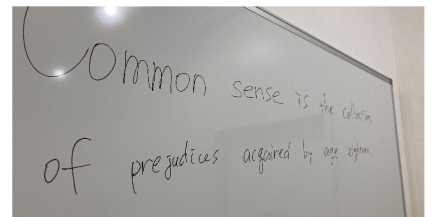 Common sense is the collection
of prejudices acquired by age eighteen